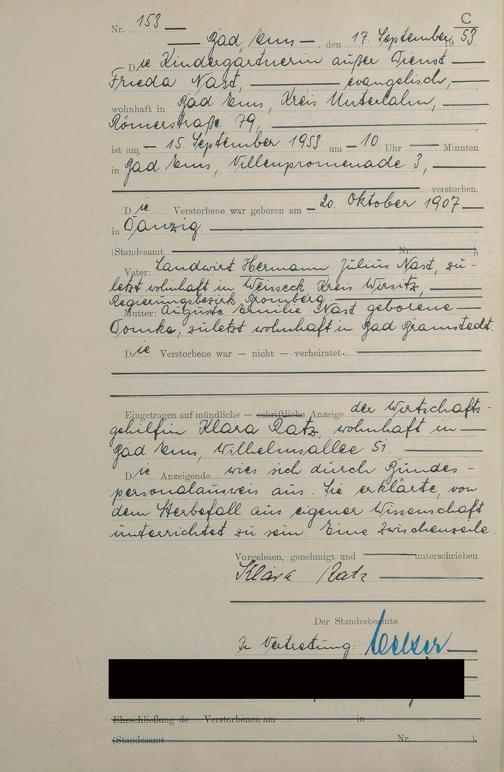 C
Nr. 153
Bad Ems, den 17. September 1953
Die Kindergärtnerin außer Dienst
Frieda Nast, evangelisch,
wohnhaft in Bad Ems, Kreis Unterlahn,
Römerstraße 79,
ist am 15. September 1953 um 10 Uhr Minuten
in Bad Ems, Villenpromenade 3,
verstorben.
Die Verstorbene war geboren am 20. Oktober 1907
in Danzig
(Standesamt Nr. ).
Vater: Landwirt Hermann Julius Nast, zu-
letzt wohnhaft in Weisseck Kreis Wirsitz,
Regierungsbezirk Bromberg
Mutter: Auguste Emilie Nast geborene
Domke, zuletzt wohnhaft in Bad Bramstedt.
Die Verstorbene war — nicht — verheiratet.
Eingetragen auf mündliche — schriftliche Anzeige der Wirtschafts-
gehilfin Klara Ratz, wohnhaft in
Bad Ems, Wilhelmsallee 51.
Die Anzeigende wies sich durch Bundes-
personalausweis aus. Sie erklärte, von
dem Sterbefall aus eigener Wissenschaft
unterrichtet zu sein. Eine Zwischenzeile.
Vorgelesen, genehmigt und unterschrieben
Klara Ratz
Der Standesbeamte
In Vertretung:
Eheschließung de Verstorbenen am in
(Standesamt Nr. ).